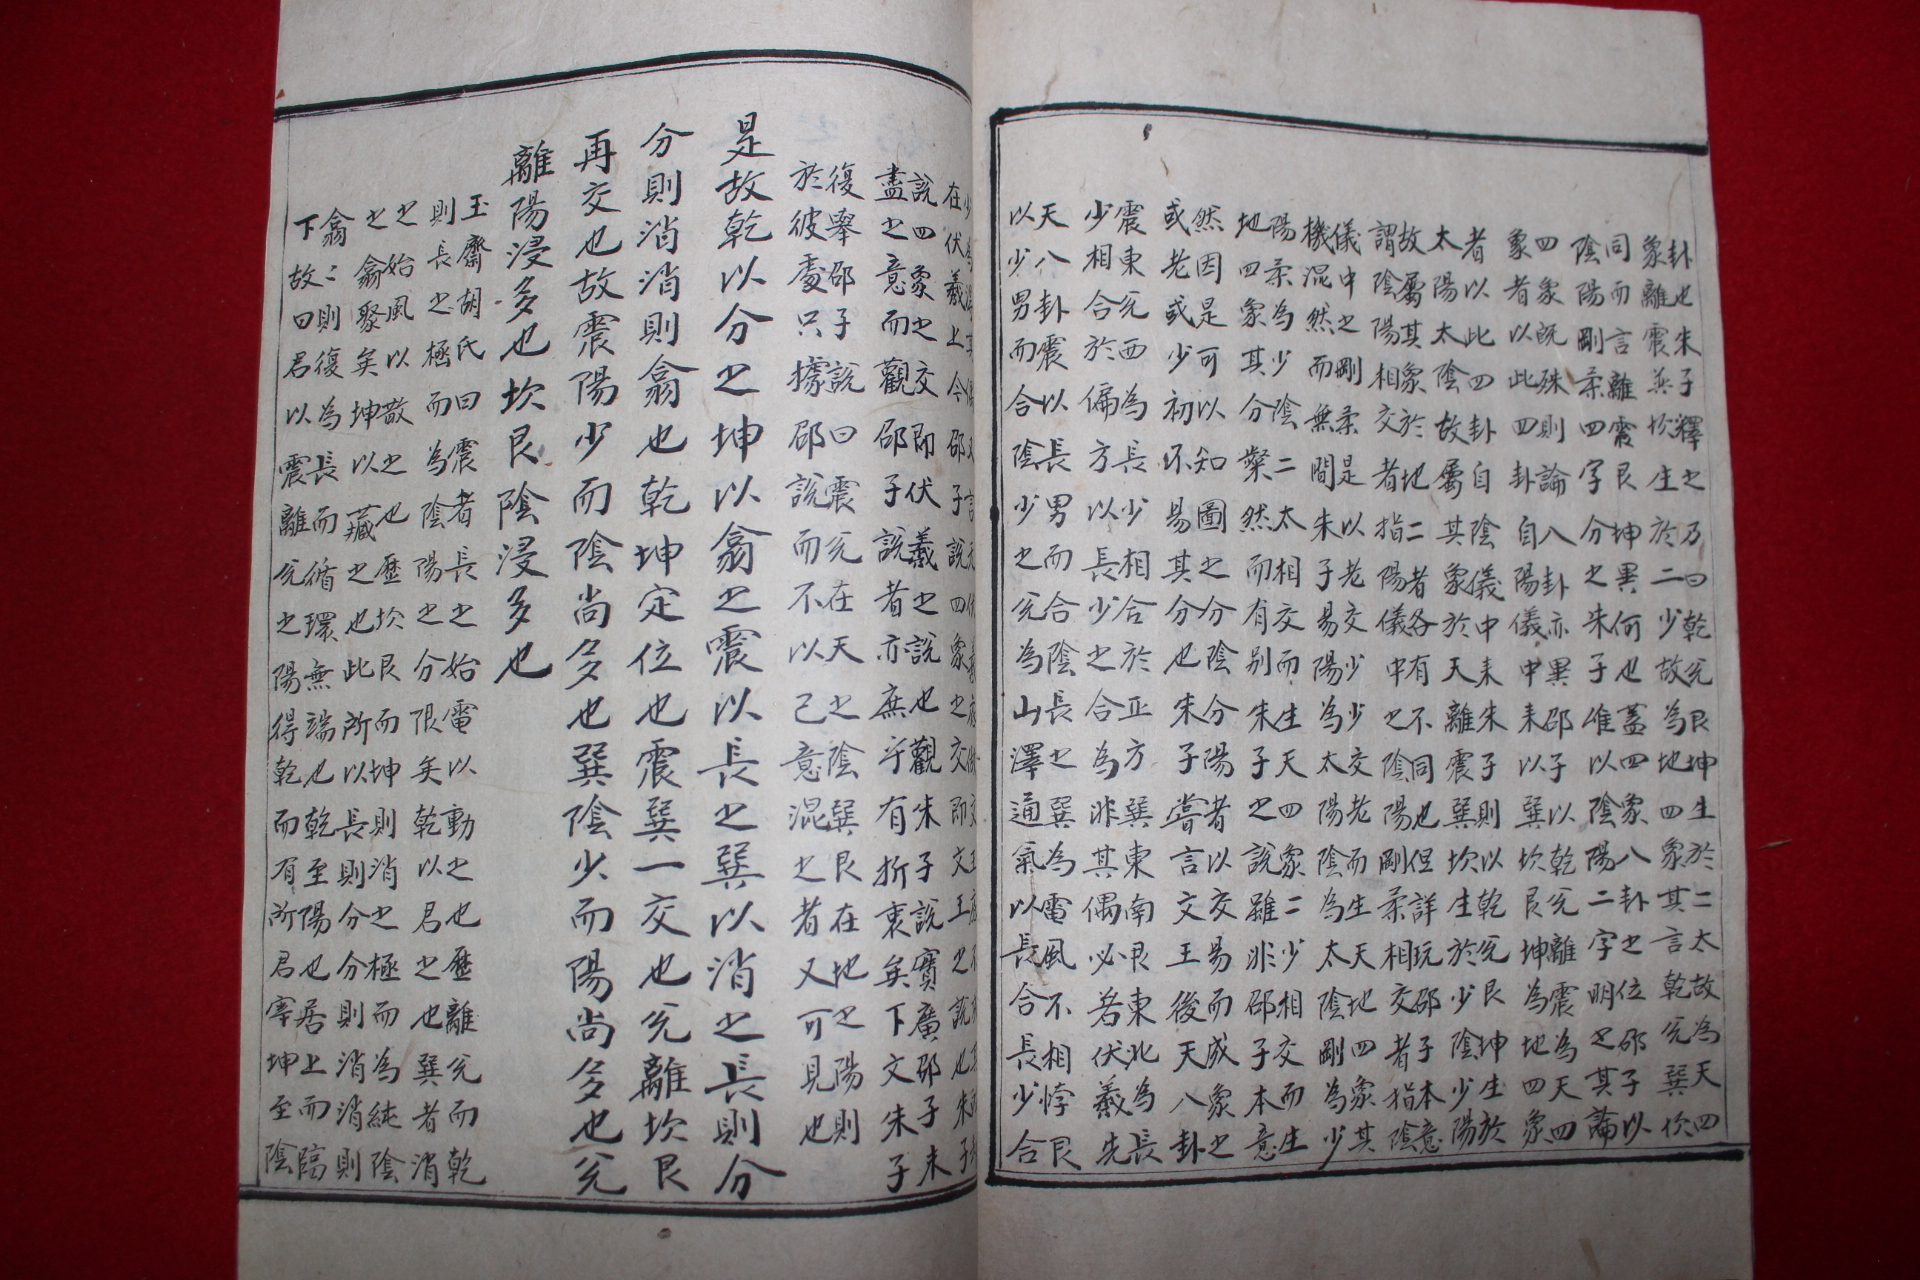 卦也朱子釋之乃曰乾兌艮坤生於二太故為天四
象離震巽坎生於二少故為地四象其言乾兌巽坎
同而言離震艮坤異何也蓋四象八卦之位邵子以
陰陽剛柔四字分之朱子唯以陰陽二字明之其論
四象既殊則論八卦亦異邵子以乾兌離震為天四
象者以此四卦自陽儀中來以巽坎艮坤為地四象
者以此四卦自陰儀中來朱子則以乾兌艮坤生於
太陽太陰故屬其象於天離震巽坎生於少陰少陽
故屬其象於地二者各有不同也但詳玩邵子本意
謂陰陽相交者指陽儀中之陰陽剛柔相交者指陰
儀中之剛柔是以老交少少交老而生天地四象其
機混然而無間朱子易陽為太陽陰為太陰剛為少
陽柔為少陰二太相交而生天四象二少相交而生
地四象其分粲然而有別朱子之說雖非邵子本意
然因是可以知圖之分陰分陽者以交易而成象之
或老或少初不易其分也朱子嘗言文王後天八卦
震東兌西為長少相合於正方巽東南艮東北為長
少相合於偏方以長少之合為非其偶必若伏羲先
天八卦震以長男而合陰長之巽為雷風不相悖艮
以少男而合陰少之兌為山澤通氣以長合長少合
在伏羲上今邵子說四象之交即文王之說也朱子
說四象之交即伏羲之說也觀朱子說實廣邵子未
盡之意而觀邵子說者亦庶乎有折衷矣下文朱子
復舉邵子說曰震兌在天之陰巽艮在地之陽則
於彼處只據邵說而不以己意混之者又可見也
是故乾以分之坤以翕之震以長之巽以消之長則分
分則消消則翕也乾坤定位也震巽一交也兌離坎艮
再交也故震陽少而陰尚多也巽陰少而陽尚多也兌
離陽浸多也坎艮陰浸多也
玉齋胡氏曰震者長之始雷以動之也歷離兌而乾
則長之極而為陰陽之分限矣乾以君之也巽者消
之始風以散之也歷坎艮而坤則消之極而為純陰
之翕聚矣坤以藏之也此所以長則分分則消消則
翕〻則復為長而循環無端也乾至陽也居上而臨
下故曰君以震離兌之陽得乾而有所君宰坤至陰